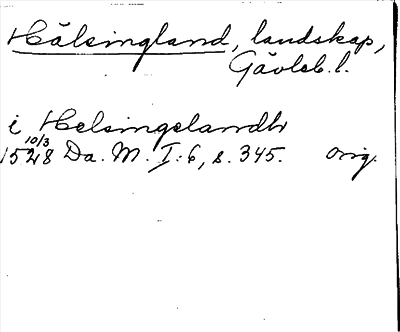 Hälsingland, landskap,
Gävleb. l.
i Helsingelandh
10/3
1528 Da. M. I:6, s. 345. Orig.